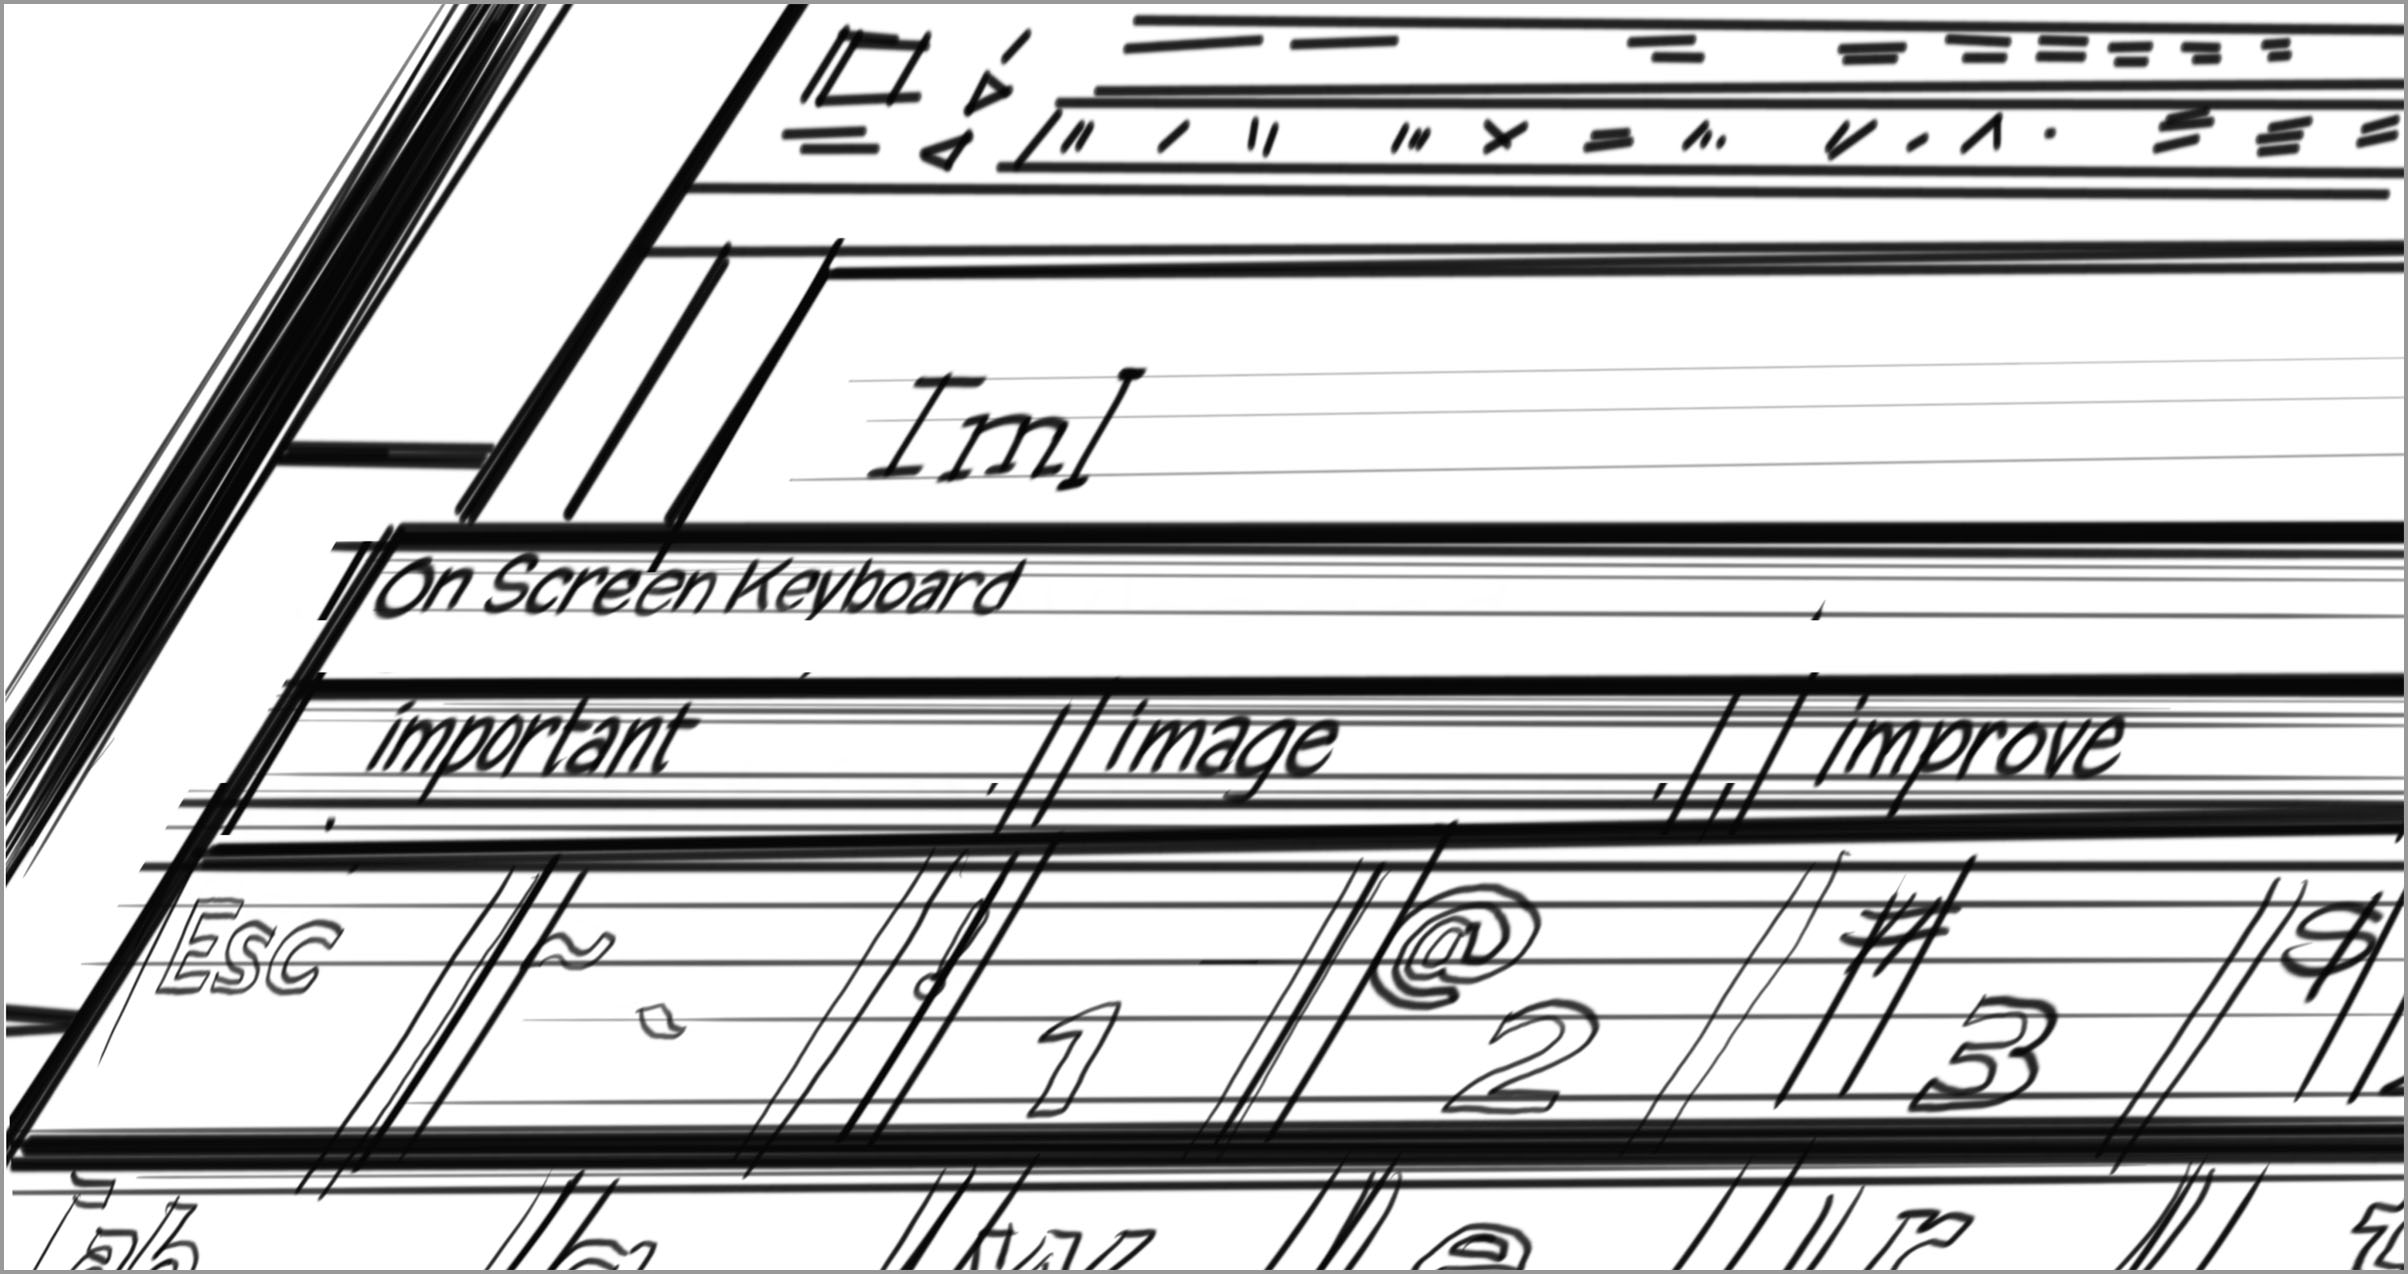 Iml
On Screen Keyboard
important image improve
Esc ~ ` ! 1 @ 2 # 3 $